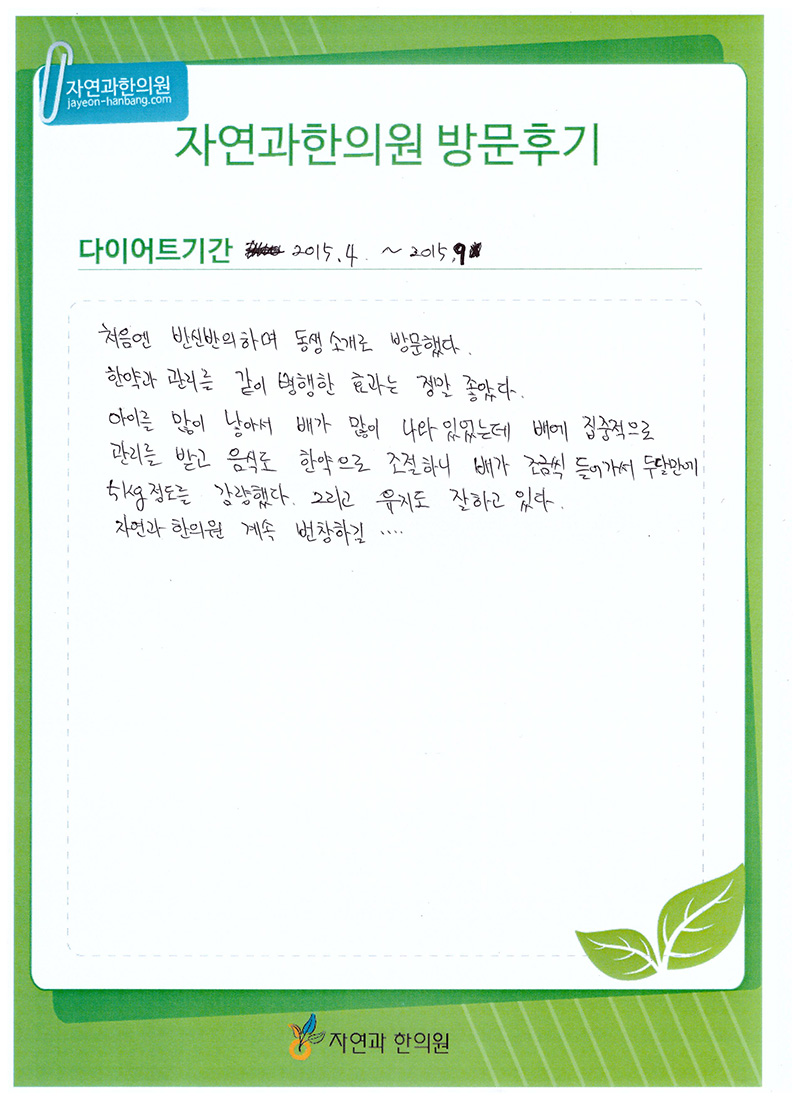 자연과한의원
jayeon-hanbang.com
자연과한의원 방문후기
다이어트기간 2015.4. ~ 2015.9
처음엔 반신반의하며 동생 소개로 방문했다.
한약과 관리를 같이 병행한 효과는 정말 좋았다.
아이를 많이 낳아서 배가 많이 나와 있었는데 배에 집중적으로
관리를 받고 음식도 한약으로 조절하니 배가 조금씩 들어가서 두달만에
5kg정도를 감량했다. 그리고 유지도 잘하고 있다.
자연과 한의원 계속 번창하길 ····
자연과 한의원